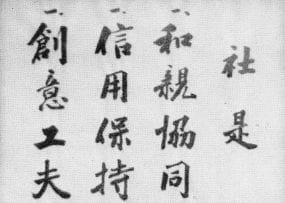 社是
一、和親協同
一、信用保持
一、創意工夫